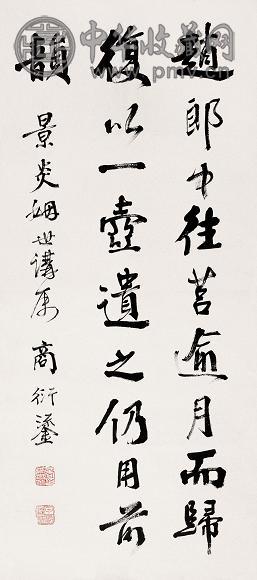 中华收藏网
www.pmv.cn
趙郎中往莒逾月而歸
復以一壺遺之仍用前
韻
景炎姻世講属 商衍鎏